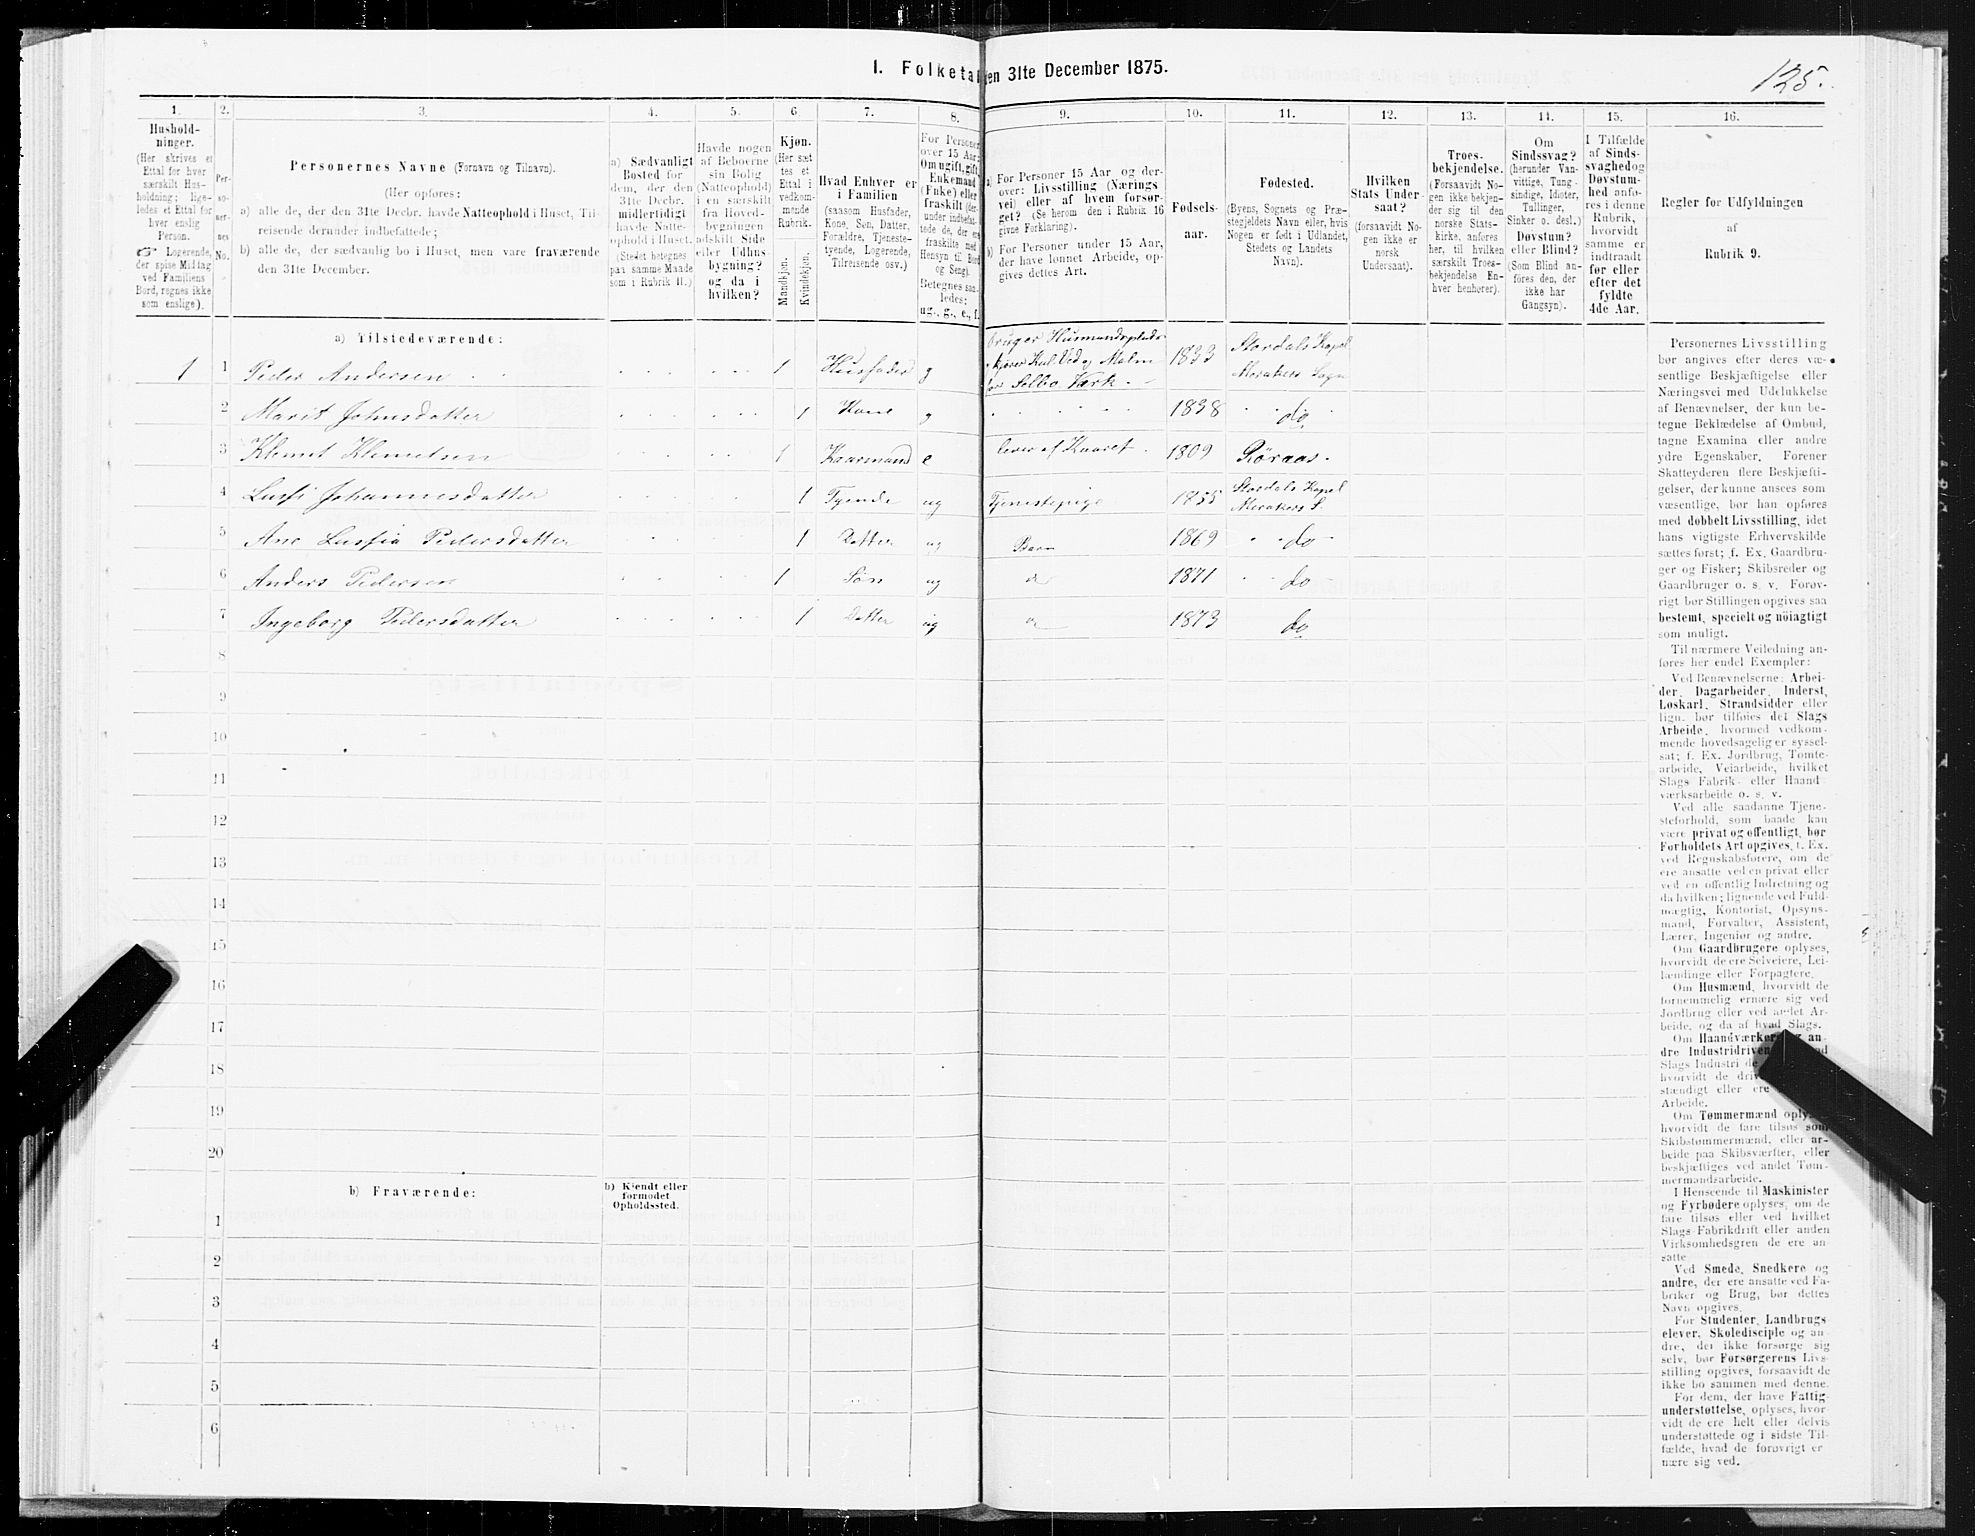 125.
I. Folketal den 31te December 1875.
1. 2. 3. 4. 5. 6. 7. 8. 9. 10. 11. 12. 13. 14. 15. 16.
Hushold-
ninger.
(Her skrives et
Ettal for hver
særskilt Hus-
holdning; lige-
ledes et Ettal for
hver enslig
Person.
☞ Logerende,
der spise Middag
ved Familiens
Bord, regnes ikke
som enslige).
Per-
so-
ner-
nes
No.
Personernes Navne (Fornavn og Tilnavn).
(Her opføres:
a) alle de, der den 31te Decbr. havde Natteophold i Huset, Til-
reisende derunder indbefattede;
b) alle de, der sædvanlig bo i Huset, men vare fraværende
den 31te December.
a) Sædvanligt
Bosted for
dem, der den
31te Decbr.
midlertidigt
havde Natte-
ophold i Huset.
(Stedet betegnes
paa samme Maade
som i Rubrik 11.)
Havde nogen
af Beboerne
sin Bolig
(Natteophold)
i en særskilt
fra Hoved-
bygningen
adskilt Side
eller Udhus-
bygning?
og da i
hvilken?
Kjøn.
(Her sæt-
tes et
Ettal i
vedkom-
mende
Rubrik.
Mandkjøn.
Kvindekjøn.
Hvad Enhver er
i Familien
(saasom Husfader,
Kone, Søn, Datter,
Forældre, Tjeneste-
tyende, Logerende,
Tilreisende osv.)
For Personer
over 15 Aar:
Om ugift, gift,
Enkemand
(Enke) eller
fraskilt (der-
under indbefat-
tede de, der ere
fraskilte med
Hensyn til Bord
og Seng).
Betegnes saa-
ledes:
ug., g., e., f.
a) For Personer 15 Aar og der-
over: Livsstilling (Nærings-
vei) eller af hvem forsør-
get? (Se herom den i Rubrik 16
givne Forklaring).
b) For Personer under 15 Aar,
der have lønnet Arbeide, op-
gives dettes Art.
Fødsels-
aar.
Fødested.
(Byens, Sognets og Præ-
stegjeldets Navn eller, hvis
Nogen er født i Udlandet,
Stedets og Landets
Navn).
Hvilken
Stats Under-
saat?
(forsaavidt No-
gen ikke er
norsk
Undersaat).
Troes-
bekjendelse.
(Forsaavidt No-
gen ikke bekjen-
der sig til den
norske Stats-
kirke, anføres
her, til hvilken
særskilt Troes-
bekjendelse En-
hver henhører).
Om
Sindssvag?
(herunder Van-
vittige, Tung-
sindige, Idioter,
Tullinger,
Sinker o. desl.)
Døvstum?
eller Blind?
(Som Blind an-
føres den, der
ikke har
Gangsyn).
I Tilfælde
af Sinds-
svaghed og
Døvstum-
hed anfø-
res i denne
Rubrik,
hvorvidt
samme er
indtraadt
før eller
efter det
fyldte
4de Aar.
Regler for Udfyldningen
af
Rubrik 9.
a) Tilstedeværende:
1 1 Peder Andersen 1 Husfader g bruger Husmandsplads
kjører Kul Ved og Malm
for Selbo Værk. 1833 Stordals Kapel
Merakers Sogn
2 Marit Johnsdatter 1 Kone g 1838 do
3 Klemet Klemetsen 1 Kaarmand e lever af Kaaret. 1809 Röraas.
4 Johannesdatter 1 Tyende ug Tjenestepige 1855 Stordals Kapel
Merakers S.
5 Ane Pedersdatter 1 Datter ug Barn 1869 do
6 Anders Pedersen 1 Søn ug do 1871 do
7 Ingeborg Pedersdatter 1 Datter ug 1873 do
8
9
10
11
12
13
14
15
16
17
18
19
20
b) Fraværende:
b) Kjendt eller
formodet
Opholdssted.
1
2
3
4
5
6
Personernes Livsstilling
bør angives efter deres væ-
sentlige Beskjæftigelse eller
Næringsvei med Udelukkelse
af Benævnelser, der kun be-
tegne Beklædelse af Ombud,
tagne Examina eller andre
ydre Egenskaber. Forener
Skatteyderen flere Beskjæfti-
gelser, der kunne ansees som
væsentlige, bør han opføres
med dobbelt Livsstilling, idet
hans vigtigste Erhvervskilde
sættes først; f. Ex. Gaardbru-
ger og Fisker; Skibsreder og
Gaardbruger o. s. v. Forøv-
rigt bør Stillingen opgives saa
bestemt, specielt og nöiagtigt
som muligt.
Til nærmere Veiledning an-
føres her endel Exempler:
Ved Benævnelserne: Arbei-
der, Dagarbeider, Inderst,
Løskarl, Strandsidder eller
lign. bør tilføies det Slags
Arbeide, hvormed vedkom-
mende hovedsagelig er syssel-
sat; f. Ex. Jordbrug, Tomte-
arbeide, Veiarbeide, hvilket
Slags Fabrik- eller Haand-
værksarbeide o. s. v.
Ved alle saadanne Tjene-
steforhold, som baade kan
være privat og offentligt, bør
Forholdets Art opgives, f. Ex.
ved Regnskabsførere, om de
ere ansatte ved en privat eller
ved en offentlig Indretning og
da hvilken; lignende ved Fuld-
mægtig, Kontorist, Opsyns-
mand, Forvalter, Assistent,
Lærer, Ingeniør og andre.
Om Gaardbrugere oplyses,
hvorvidt de ere Selveiere, Lei-
lændinge eller Forpagtere.
Om Husmænd, hvorvidt de
fornemmelig ernære sig ved
Jordbrug eller ved andet Ar-
beide, og da af hvad Slags.
Om Haandværkere og an-
dre Industridriven
Slags Industri de
hvorvidt de
stændigt eller ere
Arbeide.
Om Tømmermænd oplyses,
hvorvidt de fare tilsøs som
Skibstømmermænd, eller ar-
beide paa Skibsværfter, eller
beskjæftiges ved andet Tøm-
mermandsarbeide.
I Henseende til Maskinister
og Fyrbødere oplyses, om de
fare tilsøs eller ved hvilket
Slags Fabrikdrift eller anden
Virksomhedsgren de ere an-
satte
Ved Smede, Snedkere og
andre, der ere ansatte ved Fa-
briker og Brug, bør dettes
Navn opgives.
For Studenter, Landbrugs-
elever, Skoledisciple og an-
dre, der ikke forsørge sig
selv, bør Forsørgerens Livs-
stilling opgives, forsaavidt de
ikke bo sammen med denne.
For dem, der have Fattig-
understøttelse, oplyses, hvor-
vidt de ere helt eller delvis
understøttede og i sidste Til-
fælde, hvad de forøvrigt er
nære sig ved.